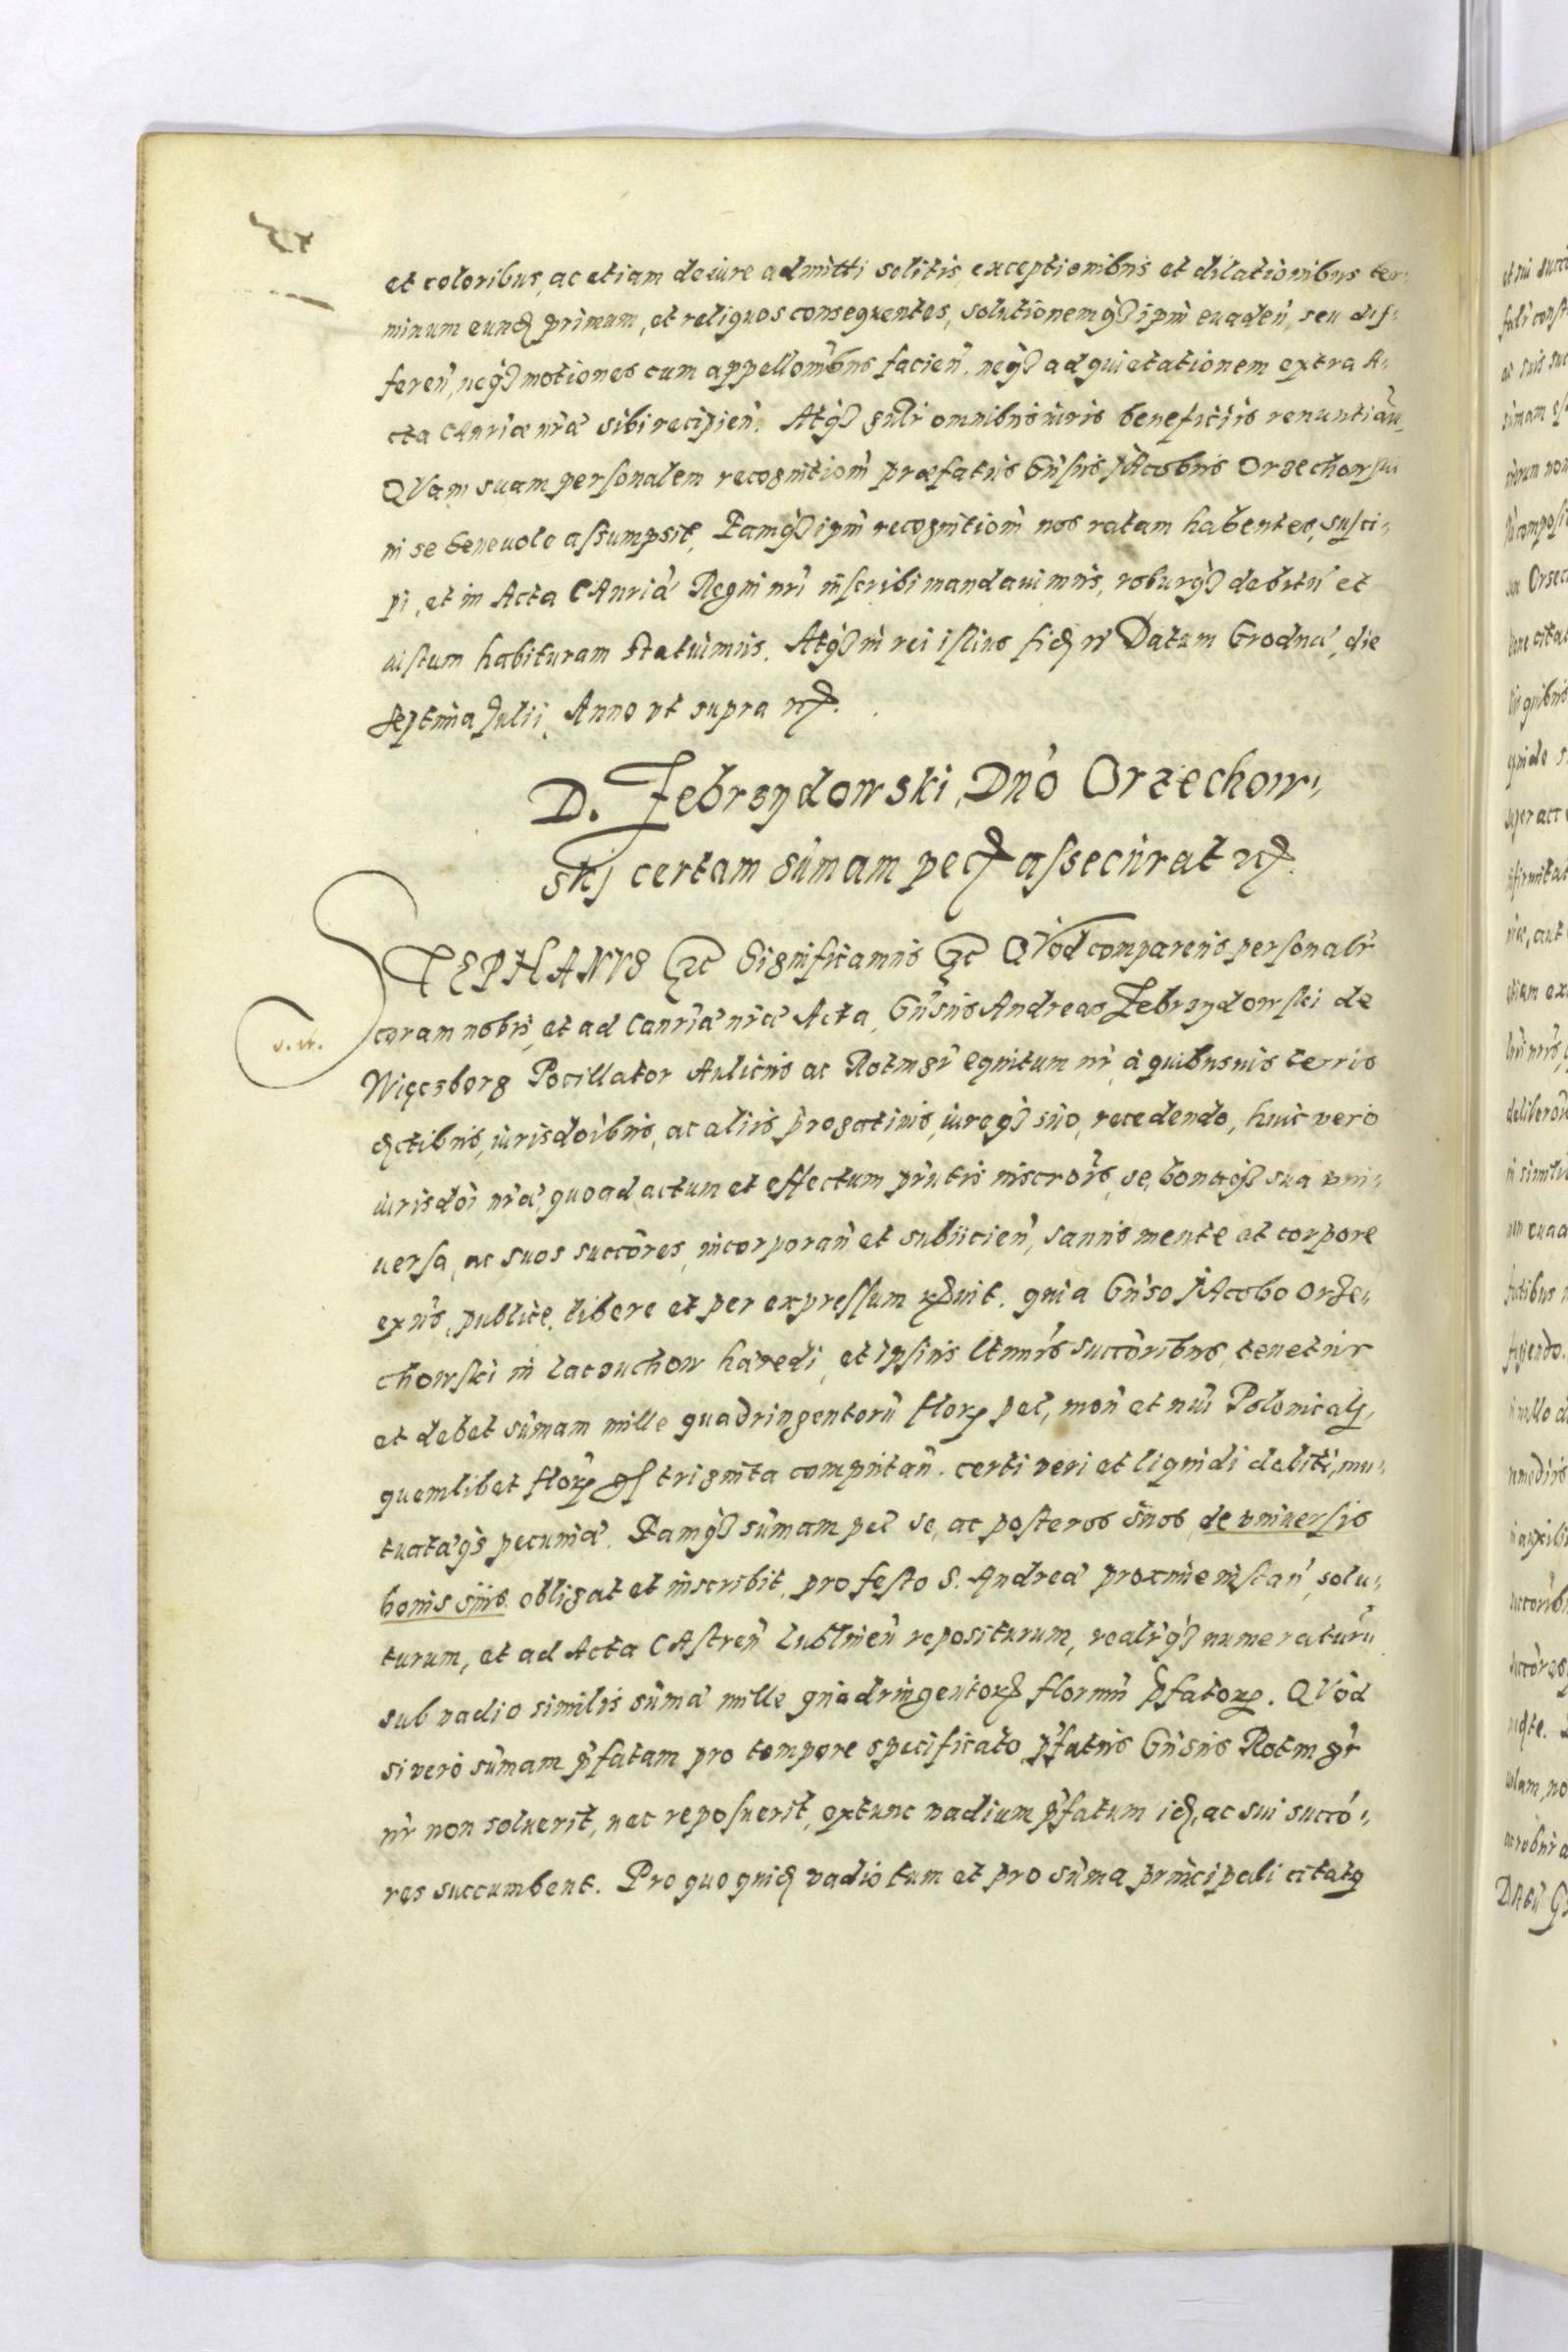 et coloribus, ac etiam de iure admitti solitis, exceptionibus et dilationibus ter-
minum eund primum, et reliquos consequentes, solutionemq ipm euaden, seu dif-
feren, neq motiones cum appellonibus facien. neq ad quietationem extra A-
cta CAnriæ nræ sibi recipien. Atq gnlr omnibus iuris beneficiis renuntiau.
QVam suam personalem recognitiom præfatus Gnsus IAcobus Orzechowski
in se beneuole assumpsit, Eamq ipm recognitiom nos ratam habentes, susci-
pi, et in Acta CAnriæ Regni nri inscribi mandauimus, roburq debitu et
iustum habituram statuimus. Atq in rei istius fid nr Datum Grodnæ, die
septima Julii, Anno vt supra
D. Zebrzydowski, Dno Orzechow-
skj certam sumam pec assecurat
STEPHANVS etc Significamus etc QVod comparens personalr
coram nobis, et ad Canriæ nræ Acta, Gnsus Andreas Zebrzydowski de
Więczborg Pocillator Aulicus ac Rotmgr equitum nr, à quibusuis terris
dctibus, iurisdoibus, ac aliis progatiuis, iureq suo, recedendo, huic vero
iurisdoi nræ, quoad actum et effectum pntis inscrois, se, bonaq sua vni-
uersa, ac suos succores, incorporan et subiicien, sanus mente et corpore
exns, publice, libere et per expressum recognouit. quia Gnso IAcobo Orze-
chowski in Laczuchow hæredi, et ipsius ltimis succoribus, tenetur
et debet sumam mille quadringentoru flor pol, mon et nui Polonical,
quemlibet flor gs triginta computan. certi veri et liquidi debiti, mu-
tuatæqs pecuniæ. Eamq sumam pec se, ac posteros suos, de vniuersis
bonis suis obligat et inscribit, pro festo S. Andreæ proxime instan, solu-
turum, et ad Acta CAstren Lublinen repositurum, realrq numeraturu
sub vadio similis sumæ mille quadringentor flornu pfator. QVod
si vero sumam pfatam pro tempore specificato pfatus Gnsus Rotmgr
nr non soluerit, nec reposuerit, extunc vadium pfatum id, ac sui succo-
res succumbent. Pro quo quid vadio tum et pro suma principali citat